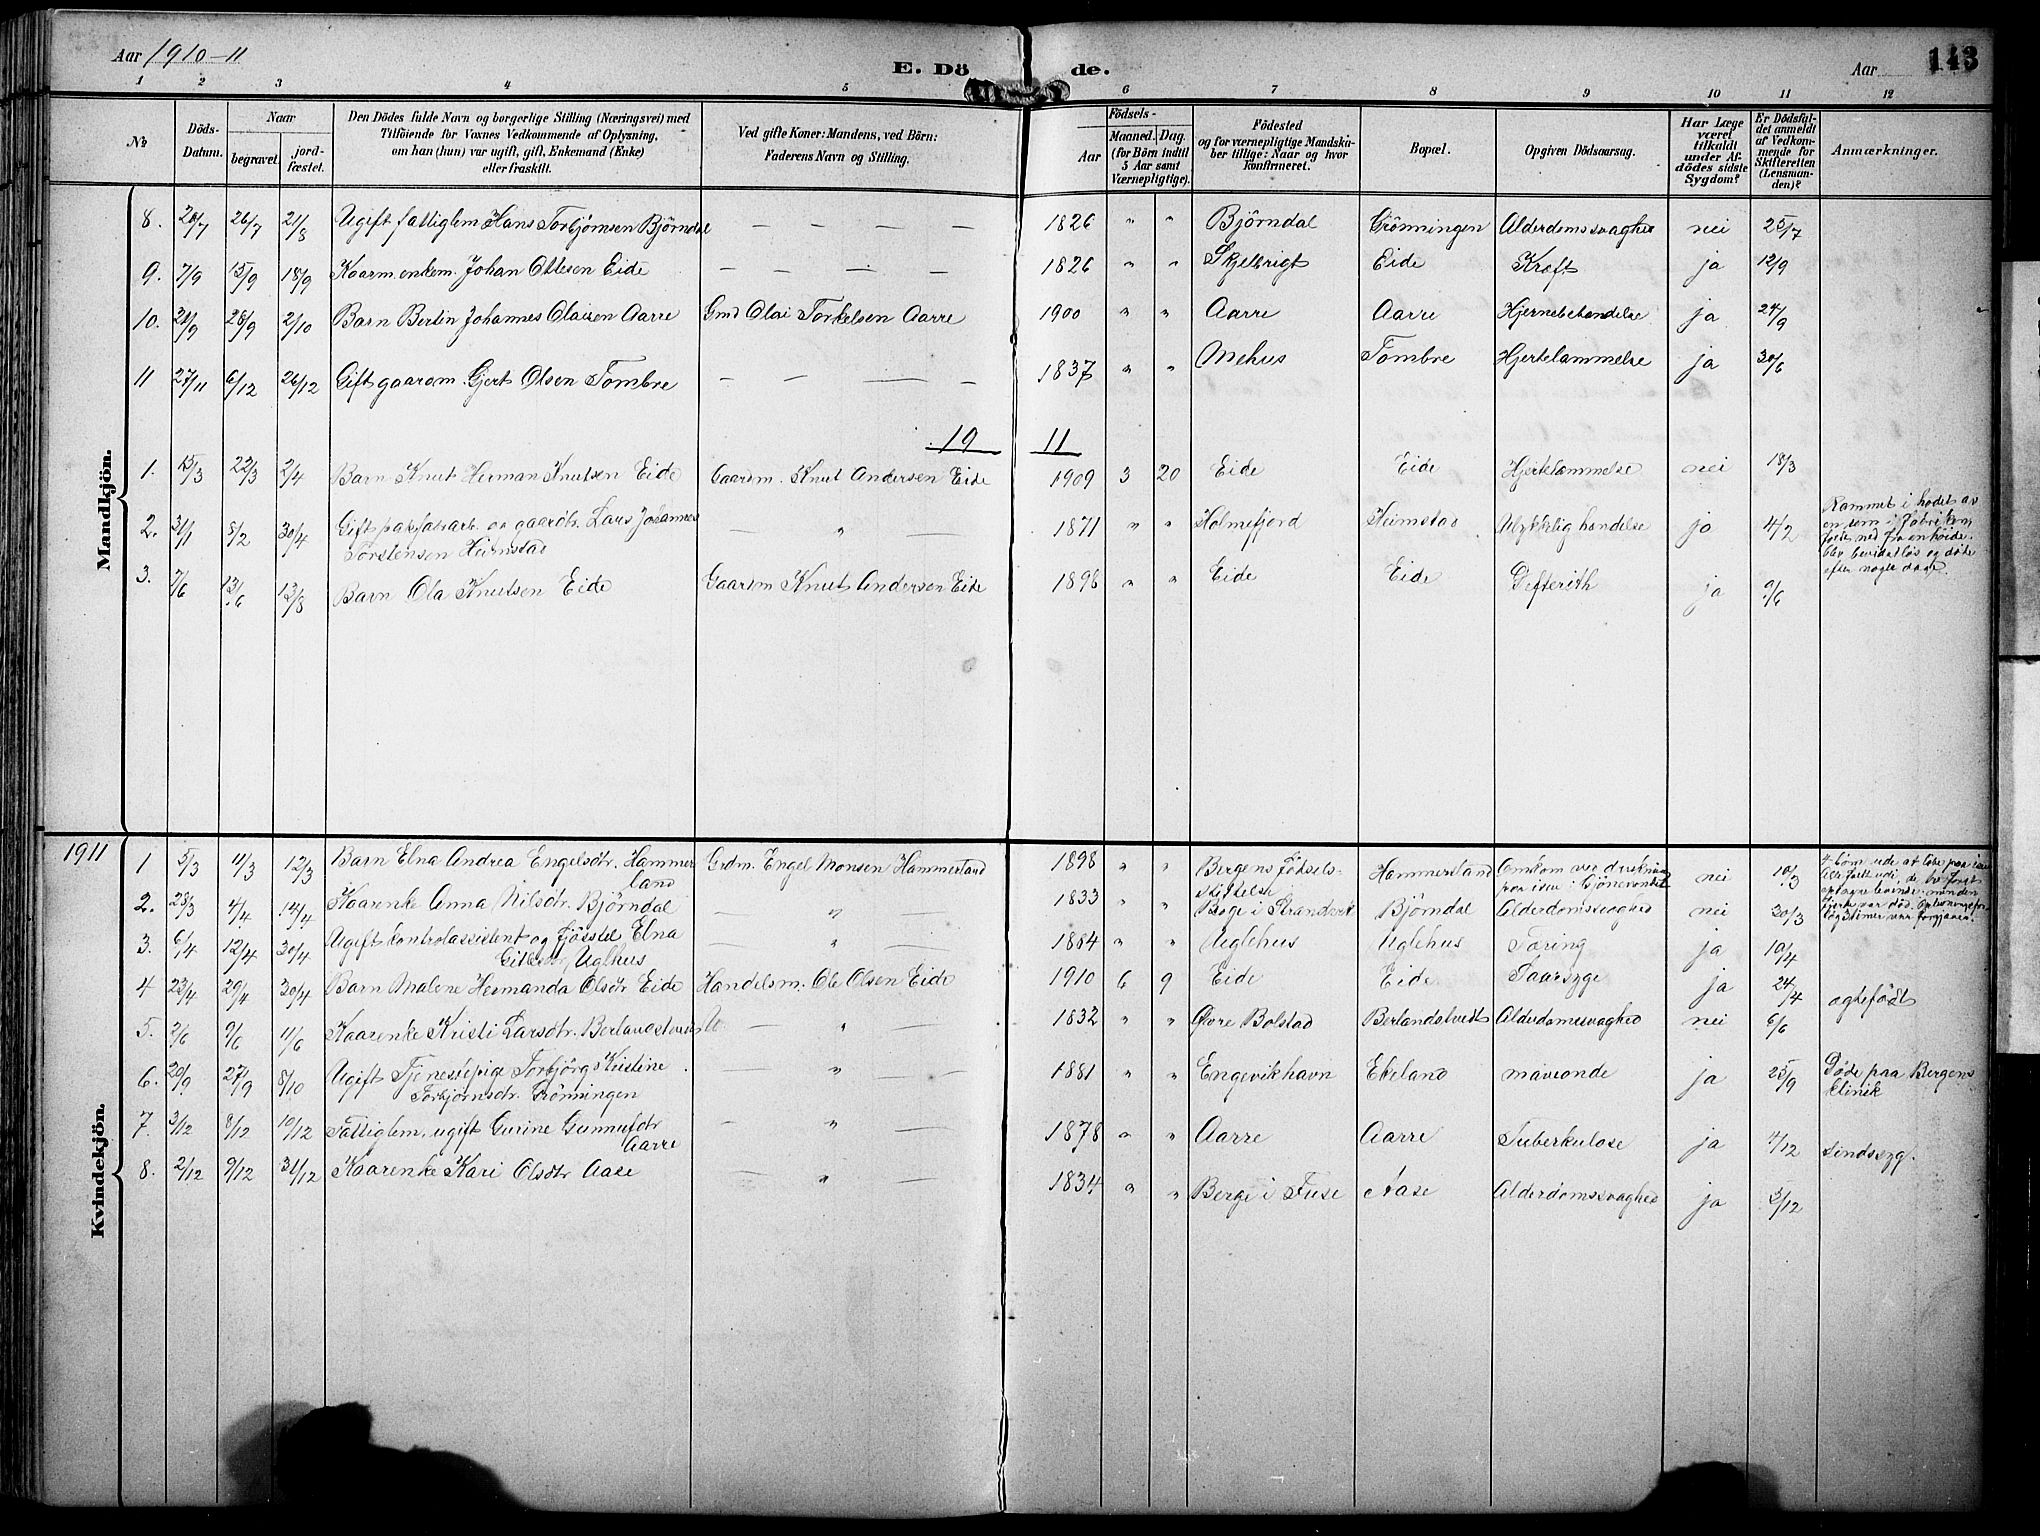 Aar 1910-11
E. Dö de.
Aar 143
1 2 3 4 5 6 7 8 9 10 11 12
№
Döds-Datum.
Naar
begravet.
jord-fæstet.
Den Dödes fulde Navn og borgerlige Stilling (Næringsvei) med
Tilföiende for Voxnes Vedkommende af Oplysning,
om han (hun) var ugift, gift, Enkemand (Enke)
eller fraskilt.
Ved gifte Koner: Mandens, ved Börn:
Faderens Navn og Stilling.
Födsels-
Aar
Maaned. Dag.
(for Börn indtil
5 Aar samt
Værnepligtige).
Födested
og for værnepligtige Mandska-
ber tillige: Naar og hvor
konfirmeret.
Bopæl.
Opgiven Dödsaarsag.
Har Læge
været
tilkaldt
under Af-
dödes sidste
Sygdom?
Er Dödsfal-
det anmeldt
af Vedkom-
mende for
Skifteretten
(Lensman-
den)?
Anmærkninger.
Mandkjön.
8. 26/7 21/8 Ugift fattiglem Hans Torbjørnsen Björndal — — — — 1826 " " Björndal Grönningen Alderdomssvaghed nei 25/7
9. 7/9 15/9 18/9 Kaarm. enkem. Johan Ottesen Eide — — — — 1826 " " Skjelbrigt Eide Kræft ja 12/9
10. 21/9 28/9 2/10 Barn Bertin Johannes Olaisen Aarre Gmd Olai Torkelsen Aarre 1900 " " Aarre Aarre ja 24/9
11 27/11 6/12 26/12 Gift gaarm. Gjert Olsen Tombre — — — — 1837 " " Mehus Tombre Hjertelammelse ja 30/6
19 11
1. 15/3 22/3 2/4 Barn Knut Herman Knutsen Eide Gaarm. Knut Andersen Eide 1909 3 20 Eide Eide Hjertelammelse nei 18/3
2. 31/1 8/2 30/4 Gift og Lars Johannes — " — 1871 " " Holmefjord Heimstad Ulykkelig hændelse ja 4/2 Rammet i hodet av
Torstensen Heimstad
en som i fabriken
ned fra en høide.
Blev bevidstløs og døde
efter nogle dage.
3. 7/6 13/6 13/8 Barn Ola Knutsen Eide Gaarm Knut Andersen Eide 1898 " " Eide Eide ja 9/6
Kvindekjön.
1911
1 5/3 11/3 12/3 Barn Elna Andrea Engelsdtr. Hammer- Grdm. Engel Monsen Hammerland 1898 " " Bergens Födsels- Hammerland Omkom ved drukning nei 10/3
land stiftelse paa isen i
2. 28/3 4/4 17/4 Kaarenke Anna Nilsdtr. Björndal — " — 1833 " " Bøge i Strandvik Björndal Alderdomssvaghed nei 30/3
3. 6/4 12/4 30/4 Ugift kontrolassistent og Elna — " — 1884 " " Uglehus Uglehus Tæring ja 10/4
Uglhus
4 23/4 29/4 30/4 Barn Malene Hermanda Olsdtr Eide Handelsm. Ole Olsen Eide 1910 6 9 Eide Eide ja 24/4 ægtefödt
5. 2/6 9/6 11/6 Kaarenke Kristi Larsdtr. Berlandstveit — " — 1832 " " Øvre Bolstad Berlandstvedt Alderdomssvaghed nei 6/6
6. 20/9 27/9 8/10 Ugift Tjenestepige Torbjörg Kristine — " — 1881 " " Engevikhavn Ekeland maveonde ja 25/9 Döde paa Bergens
Torbjørnsdtr. Grönningen
Klinik
7. 3/12 8/12 10/12 Fattiglem, ugift Gurine Gunnufdtr — " — 1878 " " Aarre Aarre Tuberkulose ja 4/12 Sindssyg.
Aarre
8. 2/12 9/12 31/12 Kaarenke Kari Olsdtr Aase — " — 1834 " " Berge i Fuse Aase Alderdomssvaghed ja 5/12